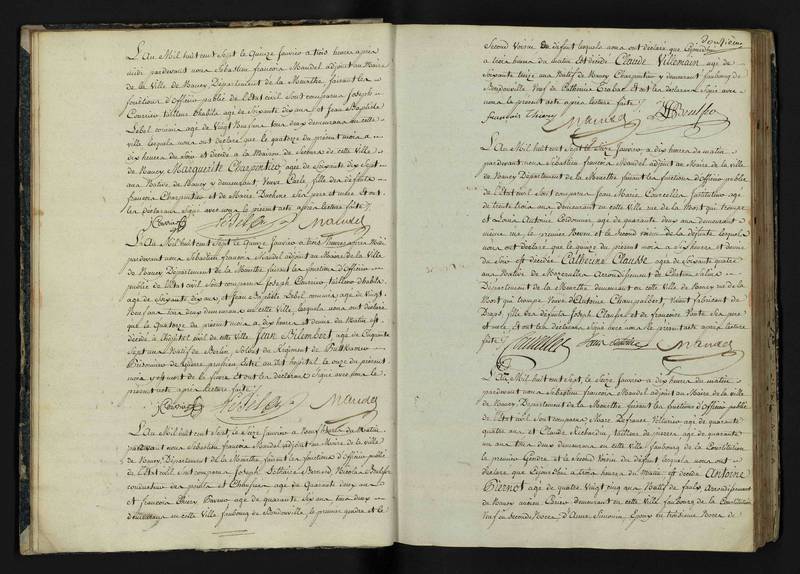 L'An Mil huit cent Sept le Quinze Janvier a trois heures après
midi pardevant nous Sébastien françois Mandel adjoint au Maire
de la Ville de Nancy, Département de la Meurthe, faisant les
fonctions d'Officier public de l'Etat civil Sont comparus Joseph
Courrier tailleur d'habits agé de Soixante dix ans et Jean Baptiste
Lebel commis agé de Vingt huit ans tous deux demeurans en cette
ville, lesquels nous ont déclaré que le quatorze du présent mois a
dix heures du Soir est décédée a la Maison de Secours de cette Ville
de Nancy, Marguerite Charpentier agée de Soixante dix Sept
ans Native de Nancy y demeurant, Veuve Carle fille des défunts
françois Charpentier et de Marie Ses pere et mere. Et ont
les déclarans Signé avec nous le présent acte après lecture faite
Lebel Mandel
L'An Mil huit cent Sept le Quinze Janvier a trois heures après Midi
pardevant nous Sébastien françois Mandel adjoint au Maire de la Ville
de Nancy, Département de la Meurthe faisant les fonctions d'Officier
public de l'Etat civil Sont comparus Joseph Courrier tailleur d'habits
agé de Soixante dix ans, et Jean Baptiste Lebel commis agé de Vingt
huit ans tous deux demeurans en cette ville, lesquels nous ont déclaré
que le Quatorze du présent mois a dix heures et demie du Matin est
décédé a l'hôpital civil de cette Ville Jean Bilembert, agé de Cinquante
Sept ans Natif de Berlin, Soldat du Régiment de
prussien entré au dit hôpital le onze du présent
mois y est mort de la fievre. Et ont les déclarans Signé avec nous le
présent acte après lecture faite
Lebel Mandel
L'An Mil huit cent Sept le Seize Janvier a Neuf heures du Matin
pardevant nous Sébastien françois Mandel adjoint au Maire de la Ville
de Nancy, Département de la Meurthe faisant les fonctions d'Officier public
de l'Etat civil ont comparus Joseph Bernard Nicolas
conducteur des ponts et Chaussées agé de Quarante deux ans
et françois Thiery agé de quarante Six ans tous deux
demeurans en cette Ville faubourg de Bondonville, le premier gendre et le
Second Voisin du défunt lesquels nous ont déclaré que Cejourdhui
a trois heures du Matin est décédé Claude Villemain agé de
Soixante treize ans Natif de Nancy Charpentier y demeurant faubourg de
Bondonville Veuf de Catherine Et ont les déclarans Signé avec
nous le présent acte après lecture faite
françois Thiery Mandel
L'An Mil huit cent Sept le Seize Janvier a dix heures du matin
pardevant nous Sébastien françois Mandel adjoint au Maire de la Ville
de Nancy Département de la Meurthe faisant les fonctions d'Officier public
de l'Etat civil Sont comparus Jean Marie Courcelles Instituteur agé
de trente trois ans demeurant en cette ville rue de la Mort qui trompe
et Louis Antoine Cordonnier agé de quarante deux ans demeurant
même rue, le premier Neveu et le Second Voisin de la défunte lesquels
nous ont déclaré que le quinze du présent mois a Six heures et demie
du Soir est décédée Catherine Clausse agée de Soixante quatre
ans Native de Arrondissement de Chateau Salins
Département de la Meurthe, demeurant en cette Ville de Nancy rue de la
Mort qui trompe Veuve d'Antoine vivant fabricant de
Draps, fille des défunts Joseph Clausse et de françoise Ses pere
et mere, Et ont les déclarans Signé avec nous le présent acte après lecture
faite
Mandel
L'An Mil huit cent Sept, le Seize Janvier a dix heures du matin
pardevant nous Sébastien françois Mandel adjoint au Maire de la Ville
de Nancy, Département de la Meurthe faisant les fonctions d'Officier public
de l'Etat civil Sont comparus Marc agé de quarante
quatre ans et Claude tailleur de pierres agé de quarante
un ans tous deux demeurans en cette Ville faubourg de la Constitution
le premier Gendre et le Second Voisin du défunt lesquels nous ont
déclaré que Cejourdhui a trois heures du Matin est décédé Antoine
Piernot agé de quatre Vingt cinq ans Natif de faulx Arrondissement
de Nancy ancien demeurant en cette Ville faubourg de la Constitution
Veuf en Seconde Noces d'Anne Simonin, Epoux en troisieme Noces de